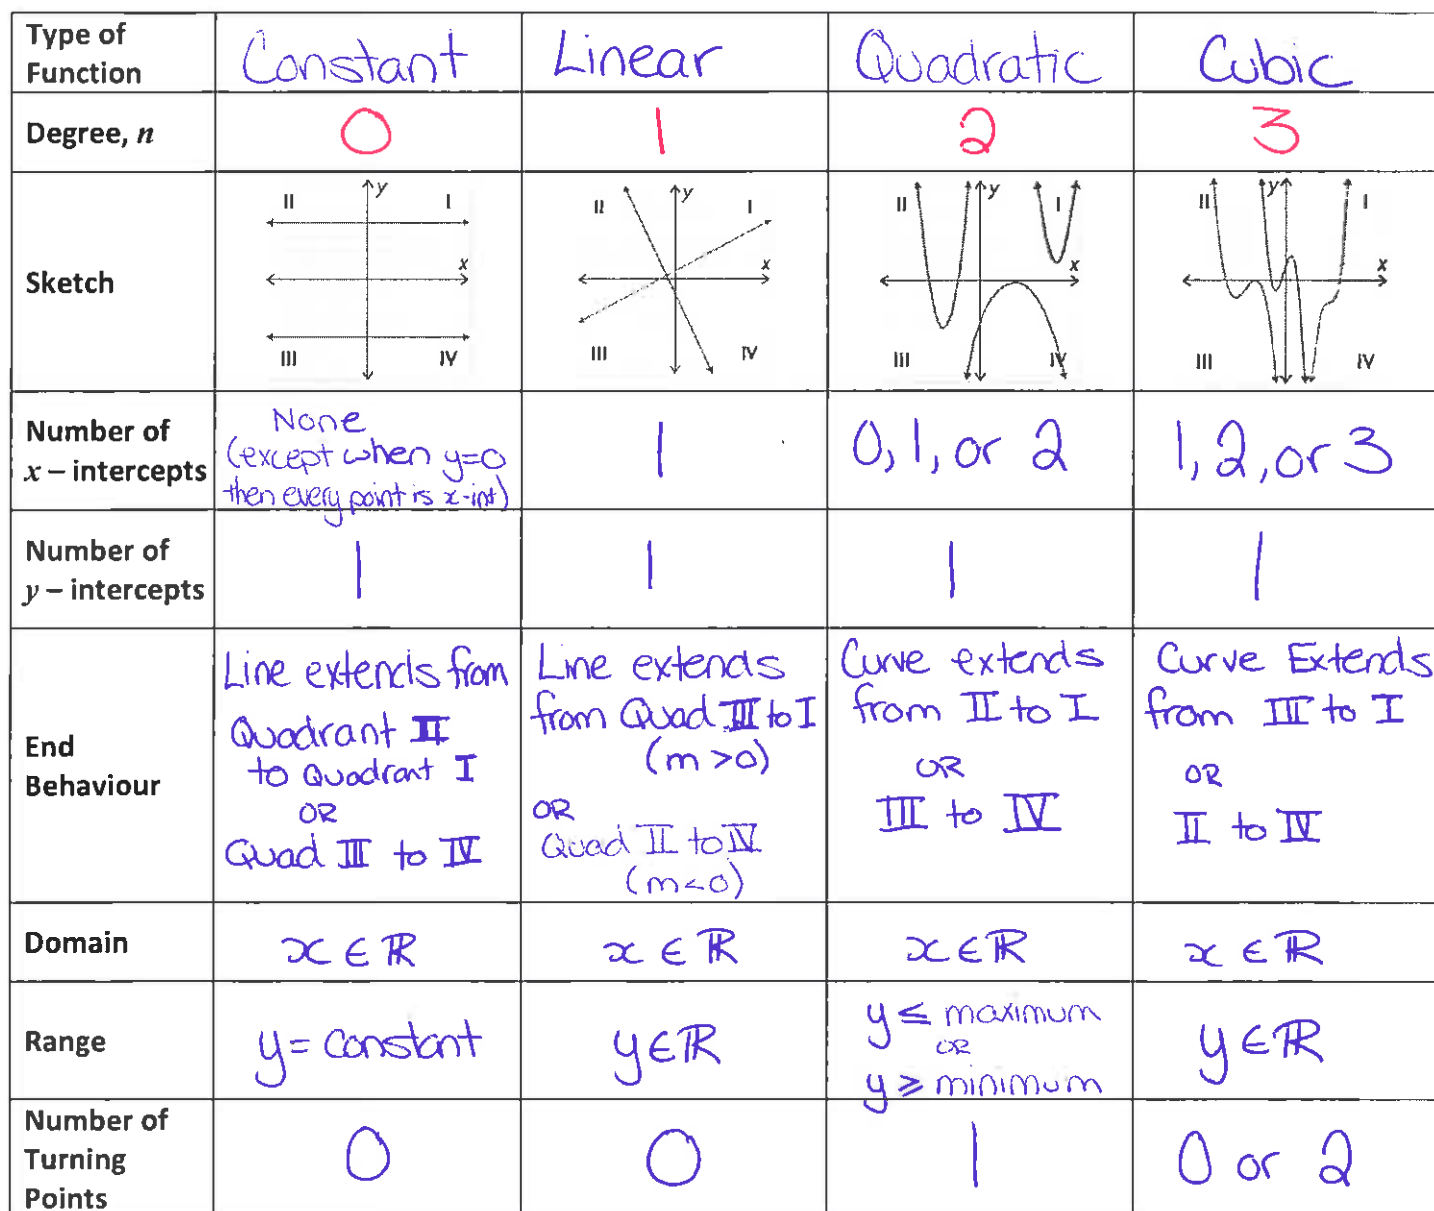 Type of Function Constant Linear Quadratic Cubic
Degree, n 0 1 2 3
Sketch
II y I II y I II y I II y I
x x x x
III IV III IV III IV III IV
Number of x – intercepts
None
(except when y=0
then every point is x-int)
1
0, 1, or 2
1, 2, or 3
Number of y – intercepts 1 1 1 1
End Behaviour
Line extends from
Quadrant II
to Quadrant I
OR
Quad III to IV
Line extends
from Quad III to I
(m > 0)
OR
Quad II to IV
(m < 0)
Curve extends
from II to I
OR
III to IV
Curve Extends
from III to I
OR
II to IV
Domain x ∈ ℝ x ∈ ℝ x ∈ ℝ x ∈ ℝ
Range
y = constant
y ∈ ℝ
y ≤ maximum
OR
y ≥ minimum
y ∈ ℝ
Number of Turning Points 0 0 1 0 or 2